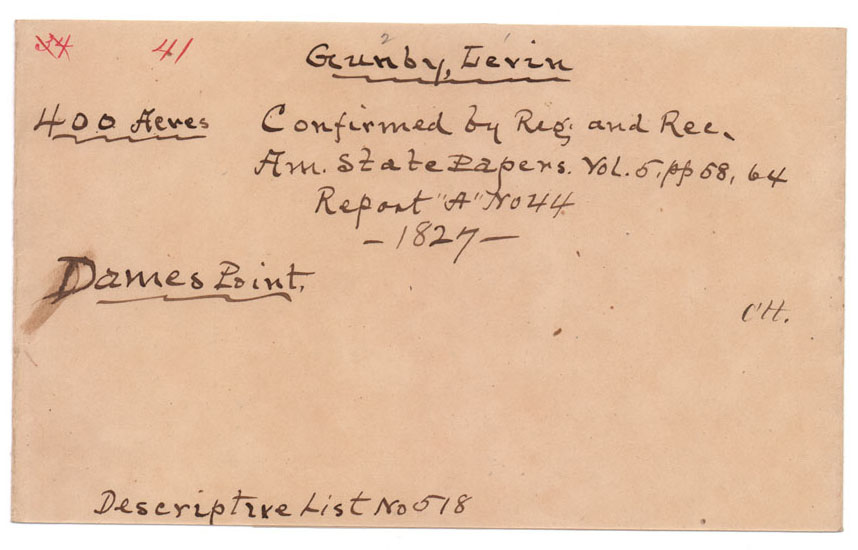 34 41
Gunby, Levin
400 Acres Confirmed by Reg. and Rec.
Am. State Papers. Vol. 5. pp 58, 64
Report "A" No 44
– 1827 –
Dames Point.
CH.
Descriptive List No 518